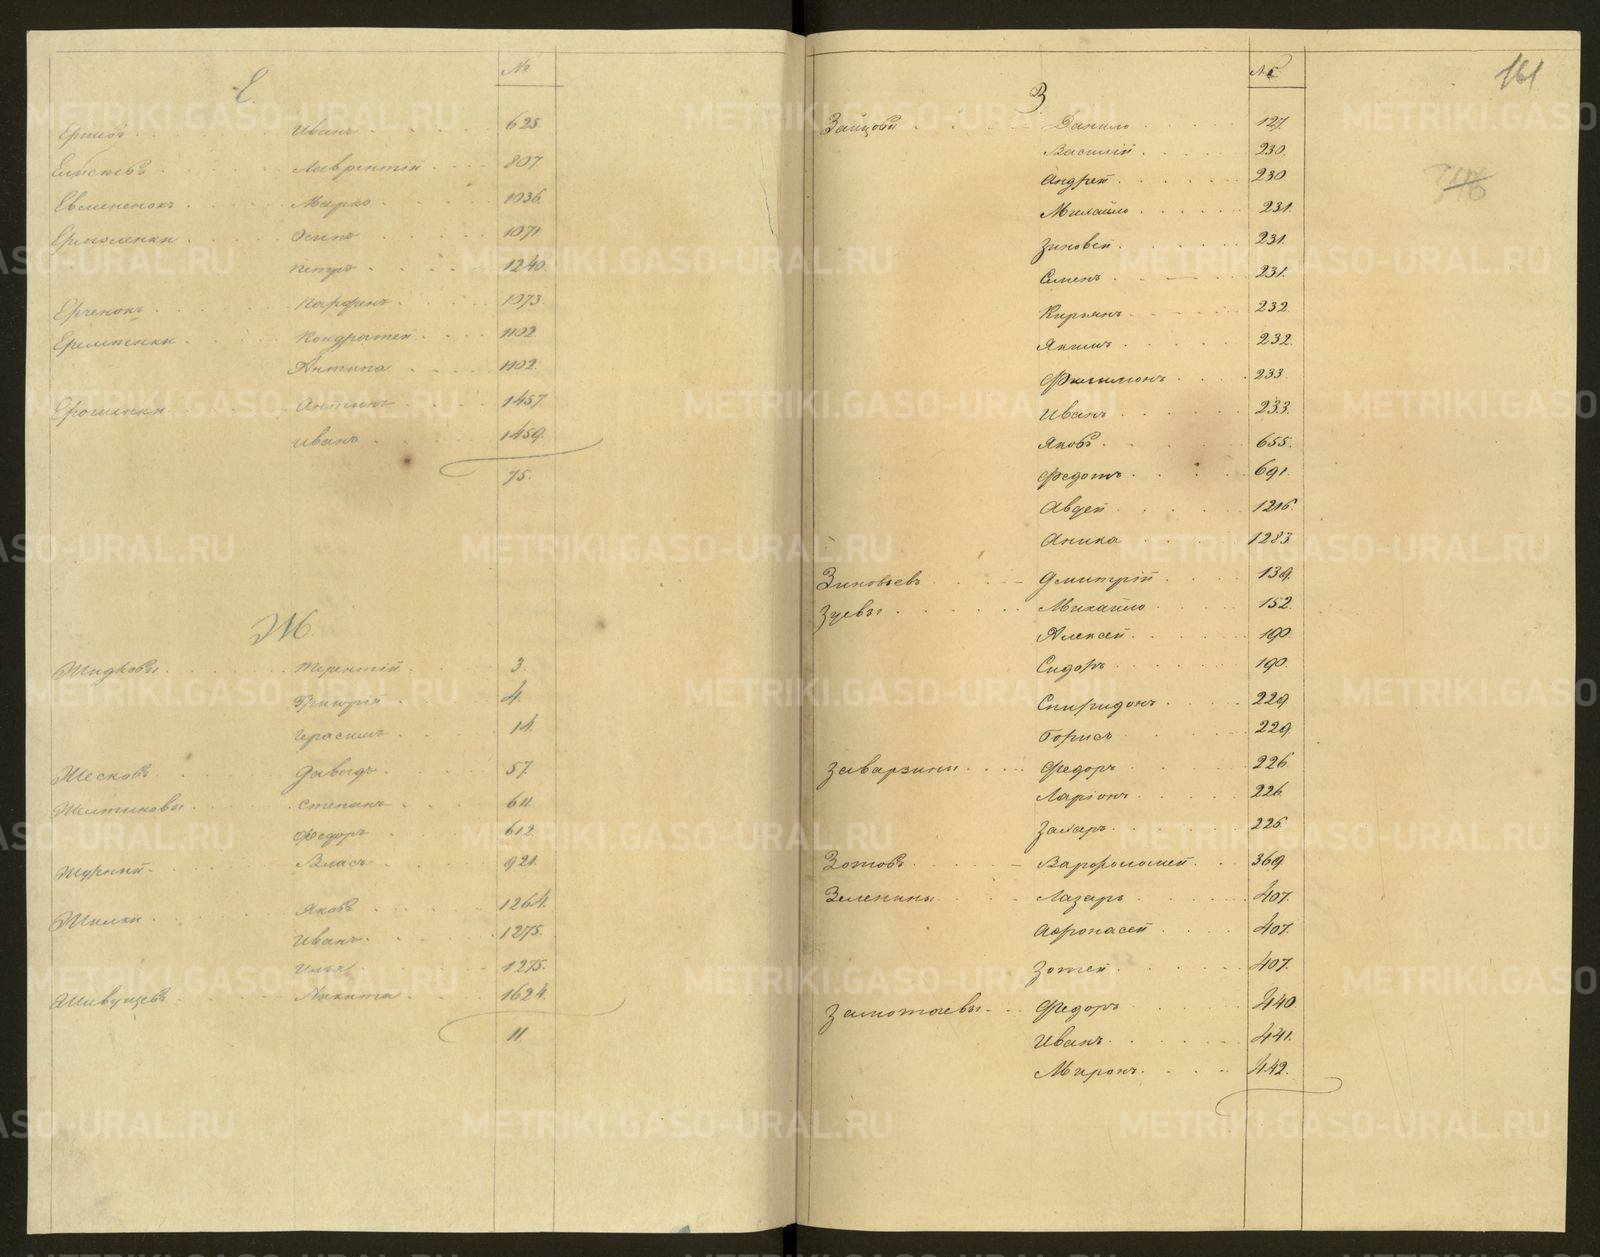 Е
№
Ершовъ Иванъ 625.
Елисѣевъ Лаврентій 807
Евмененокъ Марко 1036.
Ермоленки Осипъ 1071
Петръ 1240.
Ерченокъ Парфенъ 1073.
Кондратей 1102
Антипа 1102.
Ерошенки Антипъ 1457.
Иванъ 1459.
75.
Ж
Жидковы Терентій 3.
Григорій 4.
Герасимъ 14.
Жесковъ Давыдъ 57.
Желтиковы Степанъ 611
Федоръ 612
Власъ 921.
Жилки Яковъ 1264.
Иванъ 1275.
Илья 1275.
Живущевъ Никита 1624.
11.
161
З
№
Зайцовы Данило 127.
Василій 230.
Андрей 230.
Михайло 231.
Зиновей 231.
Семенъ 231.
Кирьянъ 232.
Якимъ 232.
Филимонъ 233.
Иванъ 233.
Яковъ 655.
Федотъ 691.
Авдей 1216.
Аника 1283
Зиновьевъ Дмитрій 139.
Зуевы Михайло 152.
Алексей 190.
Сидоръ 190.
Спиридонъ 229.
Борисъ 229.
Заварзины Федоръ 226.
Ларіонъ 226.
Захаръ 226.
Зотовъ Варфоломей 369.
Зеленины Лазарь 407.
Афонасей 407.
Зотей 407.
Замотаевы Федоръ 440.
Иванъ 441.
Миронъ 442.
METRIKI.GASO-URAL.RU